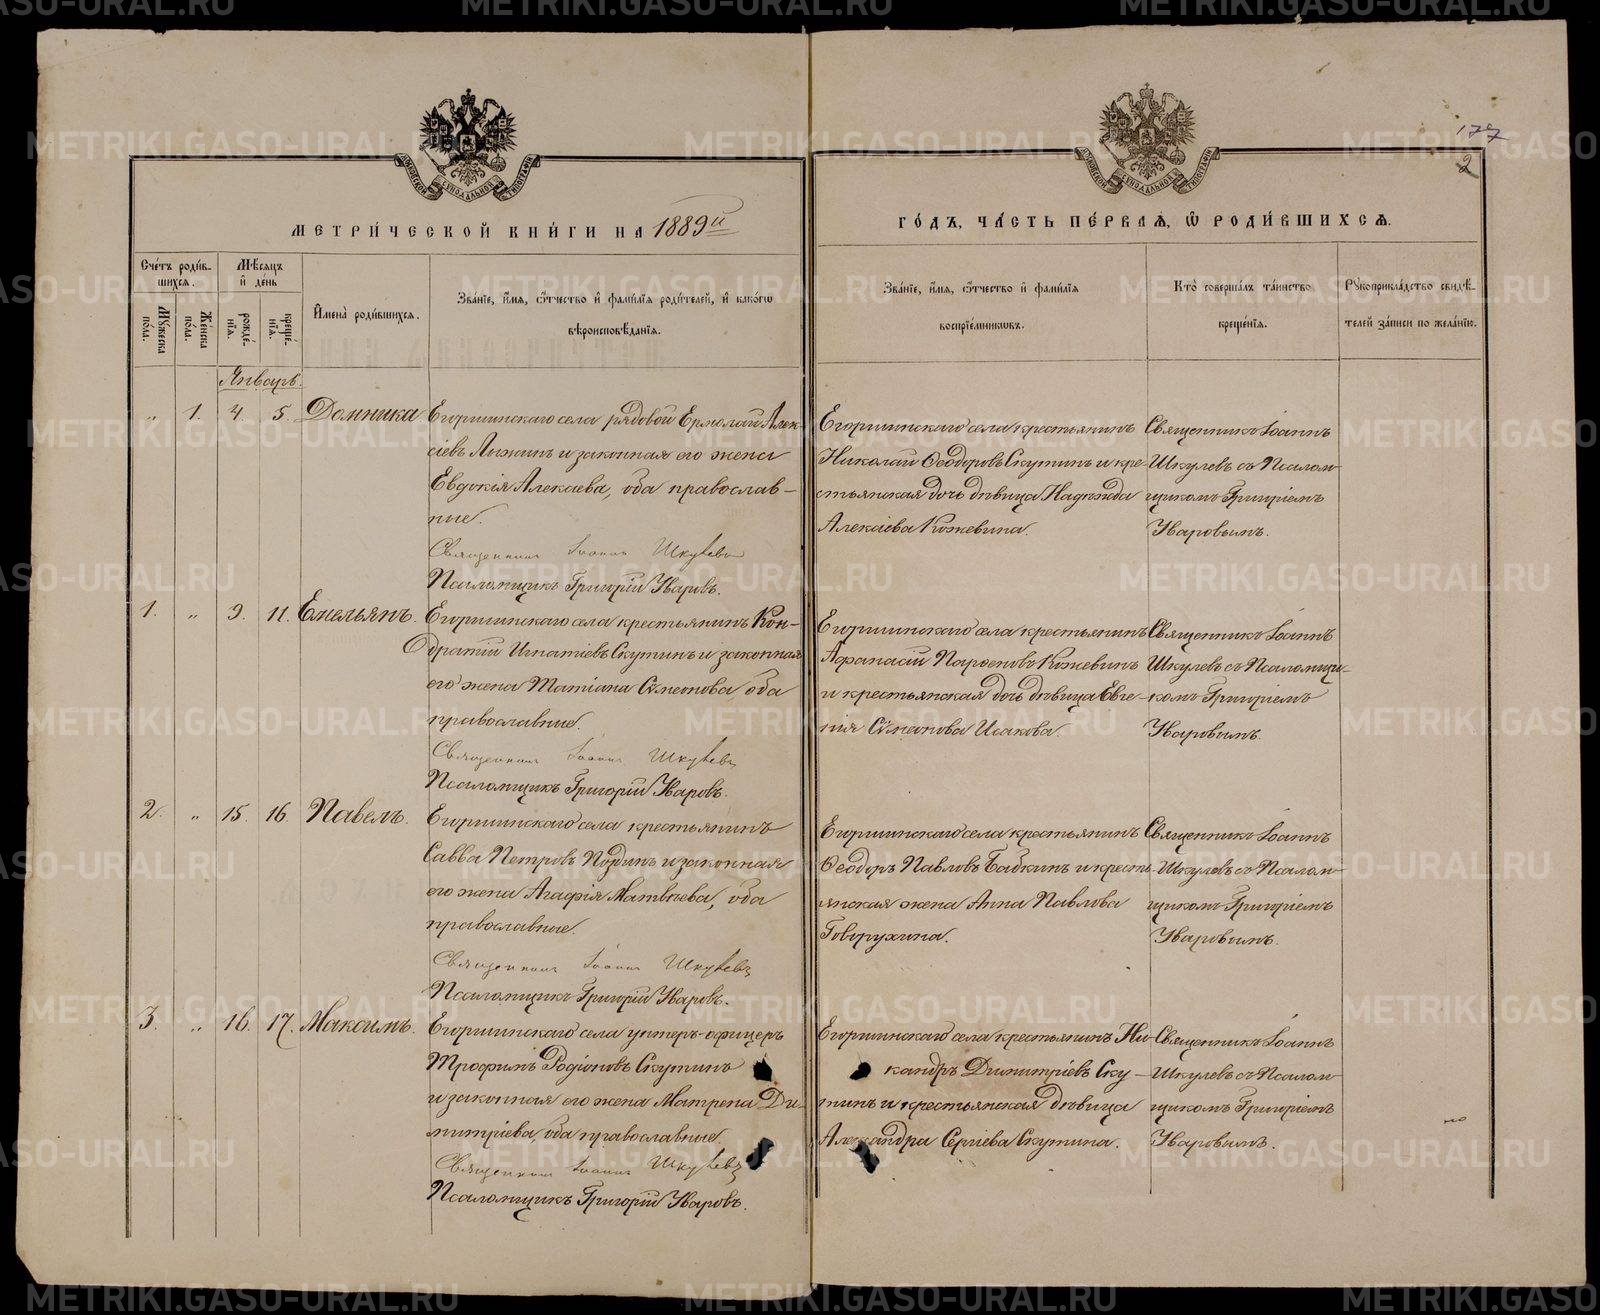 177
2
МЕТРИ́ЧЕСКОЙ КНИ́ГИ НА 1889й
ГО́ДЪ, ЧА́СТЬ ПЕ́РВАѦ, Ѡ РОДИ́ВШИХСѦ.
Сче́тъ роди́в-
шихсѧ.
Мѣ́сѧцъ
и҆ де́нь
И҆мена̀ роди́вшихсѧ.
Зва́нїе, и҆́мѧ, ѻ҆́тчество и҆ фами́лїѧ роди́телей, и҆ како́гѡ
вѣроисповѣ́данїѧ.
Зва́нїе, и҆́мѧ, ѻ҆́тчество и҆ фами́лїѧ
воспрїе́мникѡвъ.
Кто̀ соверша́лъ та́инство
креще́нїѧ.
Рꙋкоприкла́дство свидѣ́-
телей за́писи по жела́нїю.
Мꙋ́жеска
по́ла.
Же́нска
по́ла.
рожде́-
нїѧ.
креще́-
нїѧ.
Январь.
„ 1. 4. 5. Домника
Егоршинскаго села рядовой Ермолай Алек-
сіевъ Лыжинъ и законная его жена
Евдокія Алексеева, оба православ-
ные.
Священник Іоанн Шкулев
Псаломщикъ Григорій Уваровъ.
Егоршинскаго села крестьянинъ
Николай Ѳеодоровъ Скутинъ и кре-
стьянская дочь дѣвица Надежда
Алексіева Кожевина.
Священникъ Іоаннъ
Шкулевъ съ Псалом-
щикомъ Григоріемъ
Уваровымъ.
1. „ 9. 11. Емельянъ.
Егоршинскаго села крестьянинъ Кон-
дратій Игнатіевъ Скутинъ и законная
его жена Татіана Сѵмеонова, оба
православные.
Священник Іоанн Шкулевъ
Псаломщикъ Григорій Уваровъ.
Егоршинскаго села крестьянинъ
Афанасій Парѳеновъ Кожевинъ
и крестьянская дочь дѣвица Евге-
нія Сѵмеонова Исакова.
Священникъ Іоаннъ
Шкулевъ съ Псаломщи-
комъ Григоріемъ
Уваровымъ.
2. „ 15. 16. Павелъ.
Егоршинскаго села крестьянинъ
Савва Петровъ и законная
его жена Агафія Матвѣева, оба
православные.
Священник Іоанн Шкулевъ
Псаломщикъ Григорій Уваровъ.
Егоршинскаго села крестьянинъ
Ѳеодоръ Павловъ Бабкинъ и кресть-
янская жена Анна Павлова
Говорухина.
Священникъ Іоаннъ
Шкулевъ съ Псалом-
щикомъ Григоріемъ
Уваровымъ.
3. „ 16. 17. Максимъ.
Егоршинскаго села унтеръ-офицеръ
Трофимъ Родіоновъ Скутинъ
и законная его жена Матрена Ди-
митріева, оба православные.
Священник Іоанн Шкулевъ
Псаломщикъ Григорій Уваровъ.
Егоршинскаго села крестьянинъ Ни-
кандръ Димитріевъ Ску-
тинъ и крестьянская дѣвица
Александра Сергіева Скутина.
Священникъ Іоаннъ
Шкулевъ съ Псалом-
щикомъ Григоріемъ
Уваровымъ.
METRIKI.GASO-URAL.RU